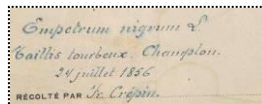 Empetrum nigrum L
Taillis tourbeux. Champlon.
24 juillet 1856
RÉCOLTÉ PAR Fr. Crépin.